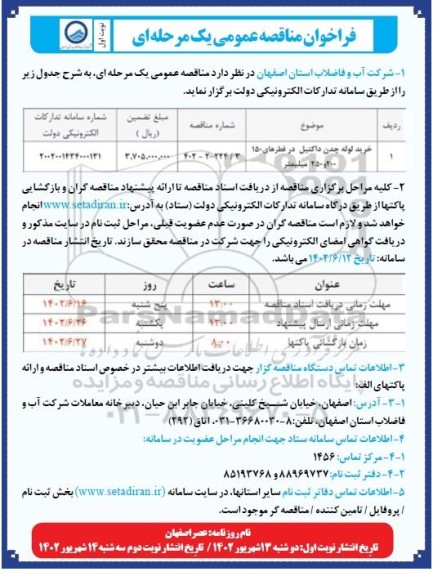 نوبت اول
فراخوان مناقصه عمومی یک مرحله‌ای
۱- شرکت آب و فاضلاب استان اصفهان در نظر دارد مناقصه عمومی یک مرحله ای، به شرح جدول زیر
را از طریق سامانه تدارکات الکترونیکی دولت برگزار نماید.
ردیف موضوع شماره مناقصه مبلغ تضمین (ریال) شماره سامانه تدارکات الکترونیکی دولت
۱ خرید لوله چدن داکتیل در قطرهای ۱۵۰ ۲۰۰و۲۵۰ میلیمتر ۴۰۲-۲-۲۲۴/۳ ۳,۷۰۵,۰۰۰,۰۰۰ ۲۰۰۲۰۰۱۴۳۴۰۰۰۱۳۱
۲- کلیه مراحل برگزاری مناقصه از دریافت اسناد مناقصه تا ارائه پیشنهاد مناقصه گران و بازگشایی
پاکتها از طریق درگاه سامانه تدارکات الکترونیکی دولت (ستاد) به آدرس: www.setadiran.ir انجام
خواهد شد و لازم است مناقصه گران در صورت عدم عضویت قبلی، مراحل ثبت نام در سایت مذکور و
دریافت گواهی امضای الکترونیکی را جهت شرکت در مناقصه محقق سازند. تاریخ انتشار مناقصه در
سامانه: تاریخ ۱۴۰۲/۶/۱۲ می باشد.
عنوان ساعت روز تاریخ
مهلت زمانی دریافت اسناد مناقصه ۱۳:۰۰ پنج شنبه ۱۴۰۲/۶/۱۶
مهلت زمانی ارسال پیشنهاد ۱۳:۰۰ یکشنبه ۱۴۰۲/۶/۲۶
زمان بازگشائی پاکتها ۸:۰۰ دوشنبه ۱۴۰۲/۶/۲۷
۳- اطلاعات تماس دستگاه مناقصه گزار جهت دریافت اطلاعات بیشتر در خصوص اسناد مناقصه و ارائه
پاکتهای الف:
۳-۱- آدرس: اصفهان، خیابان شیخ کلینی، خیابان جابر ابن حیان، دبیرخانه معاملات شرکت آب و
فاضلاب استان اصفهان، تلفن: ۸-۳۶۶۸۰۰۳۰-۰۳۱، اتاق (۲۹۲)
۴- اطلاعات تماس سامانه ستاد جهت انجام مراحل عضویت در سامانه:
۴-۱- مرکز تماس: ۱۴۵۶
۴-۲- دفتر ثبت نام: ۸۸۹۶۹۷۳۷ و ۸۵۱۹۳۷۶۸
۵- اطلاعات تماس دفاتر ثبت نام سایر استانها، در سایت سامانه (www.setadiran.ir) بخش ثبت نام
/ پروفایل / تامین کننده / مناقصه گر موجود است.
نام روزنامه: عصر اصفهان
تاریخ انتشار نوبت اول: دو شنبه ۱۳ شهریور ۱۴۰۲ / تاریخ انتشار نوبت دوم سه شنبه ۱۴ شهریور ۱۴۰۲